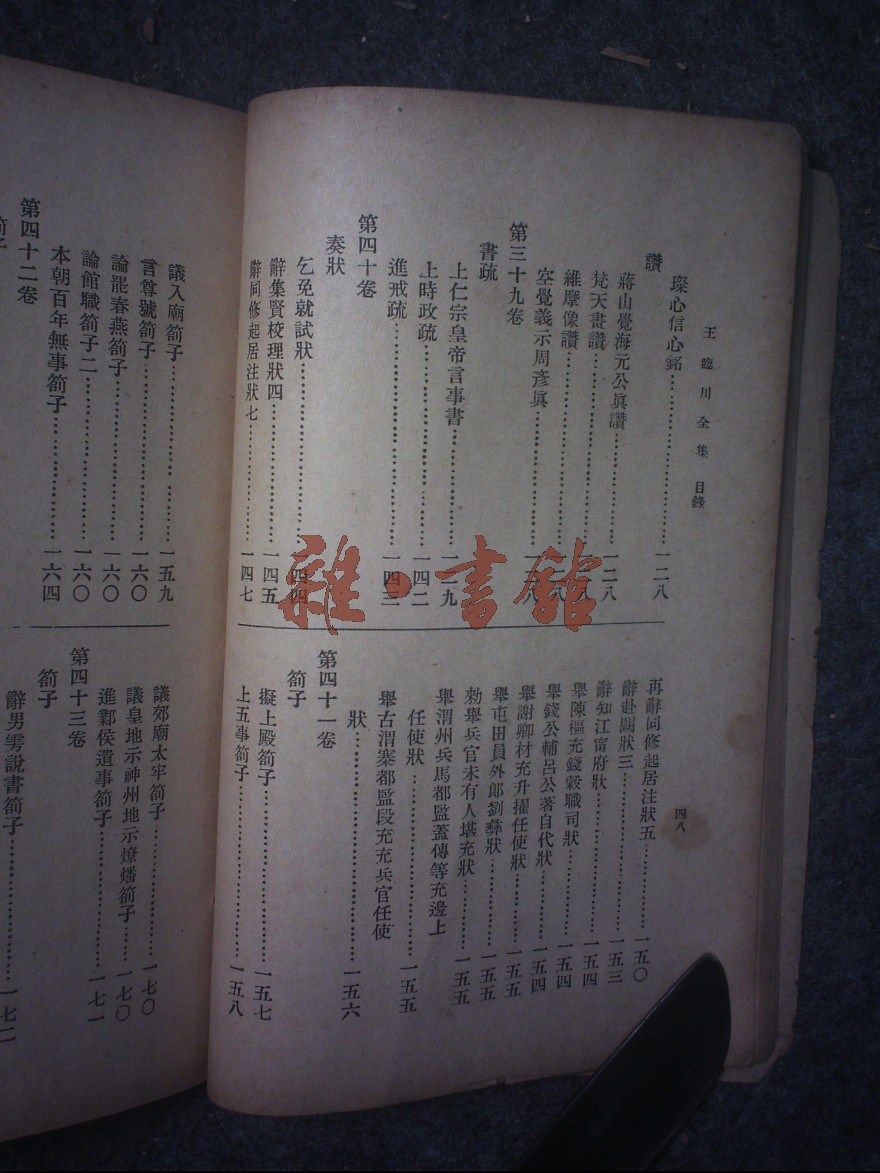 王臨川全集 目錄
四八
璨心信心銘……一二八
讚
蔣山覺海元公眞讚……一二八
梵天畫讚……八
維摩像讚……八
空覺義示周彥眞……八
第三十九卷
書疏
上仁宗皇帝言事書……一二九
上時政疏……一四二
進戒疏……一四三
第四十卷
奏狀
乞免就試狀……一四四
辭集賢校理狀四……一四五
辭同修起居注狀七……一四七
再辭同修起居注狀五……一五〇
辭赴闕狀三……一五三
辭知江甯府狀……一五四
舉陳樞充錢穀職司狀……一五四
舉錢公輔呂公著自代狀……一五四
舉謝卿材充升擢任使狀……一五五
舉屯田員外郎劉彝狀……一五五
勑舉兵官未有人堪充狀……一五五
舉渭州兵馬都監蓋傳等充邊上
任使狀……一五五
舉古渭寨都監段充充兵官任使
狀……一五六
第四十一卷
箚子
擬上殿箚子……一五七
上五事箚子……一五八
議入廟箚子……一五九
言尊號箚子……一六〇
論罷春燕箚子……一六〇
論館職箚子二……一六〇
本朝百年無事箚子……一六四
第四十二卷
箚子
議郊廟太牢箚子……一七〇
議皇地示神州地示燎燔箚子……一七〇
進鄴侯遺事箚子……一七一
第四十三卷
箚子
辭男雱說書箚子……一七二
雜·書館